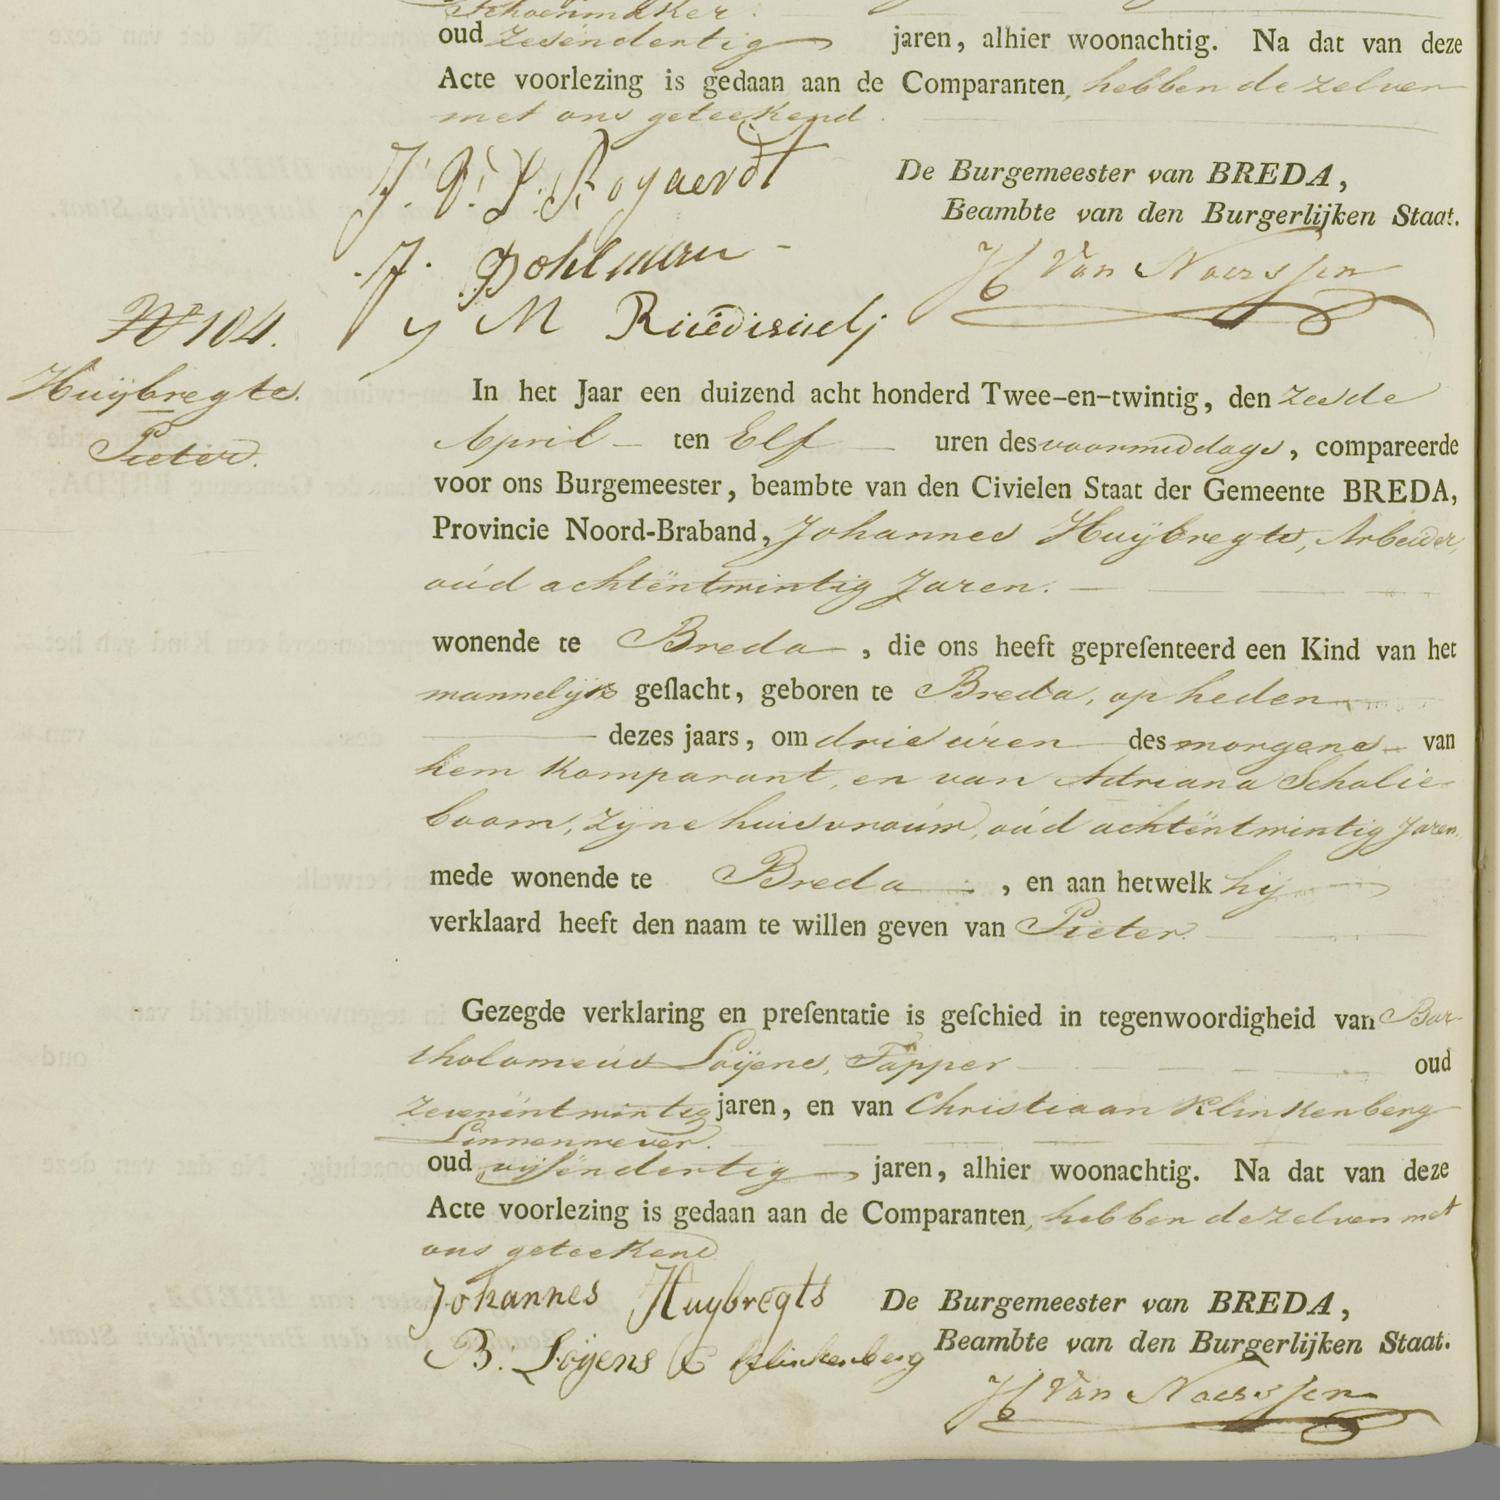 Schoenmaker.
oud zesendertig jaren, alhier woonachtig. Na dat van deze
Acte voorlezing is gedaan aan de Comparanten, hebben dezelven
met ons geteekend.
De Burgemeester van BREDA,
Beambte van den Burgerlijken Staat.
H Van Naerssen
J. Pohlman
N° 104.
Huÿbregts.
Pieter.
In het Jaar een duizend acht honderd Twee-en-twintig, den zesde
April ten Elf uren des voormiddags, compareerde
voor ons Burgemeester, beambte van den Civielen Staat der Gemeente BREDA,
Provincie Noord-Braband, Johannes Huÿbregts, Arbeider,
oúd achtëntwintig Jaren.
wonende te Breda, die ons heeft geprefenteerd een Kind van het
mannelijk geflacht, geboren te Breda, op heden
dezes jaars, om drie úren des morgens van
hem komparant, en van Adriana Schalie-
boom, zijne huisvroúw, oúd achtëntwintig Jaren,
mede wonende te Breda, en aan hetwelk hij
verklaard heeft den naam te willen geven van Pieter.
Gezegde verklaring en prefentatie is gefchied in tegenwoordigheid van Bar-
tholomeús Loÿens, Tapper oud
zevenëntwintig jaren, en van Christiaan Klinkenberg
Linnenwever.
oud vijfëndertig jaren, alhier woonachtig. Na dat van deze
Acte voorlezing is gedaan aan de Comparanten, hebben dezelven met
ons geteekend
Johannes Huybregts
De Burgemeester van BREDA,
Beambte van den Burgerlijken Staat.
B. Löyens C Klinkenberg
H Van Naerssen